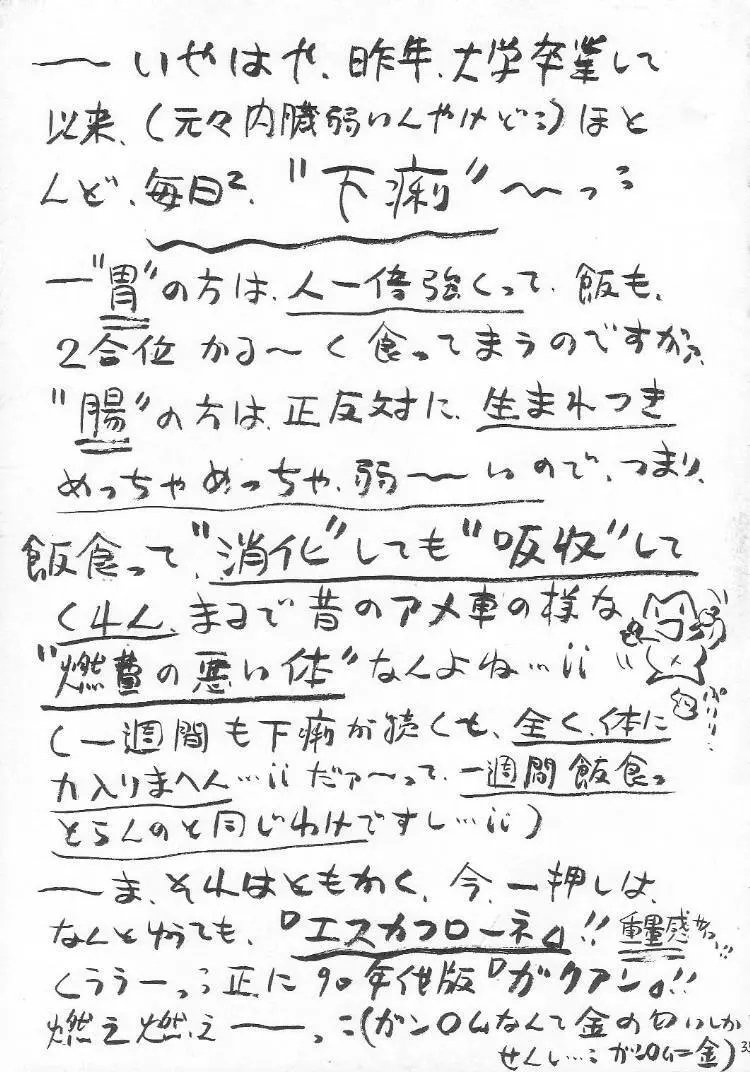 ―〜いやはや、昨年、大学卒業して
以来、(元々内臓弱いんやけど…)ほと
んど、毎日²、"下痢"〜っ…
―"胃"の方は、人一倍強くって、飯も、
2合位かる〜く食ってまうのですがァ、
"腸"の方は、正反対に、生まれつき
めっちゃめっちゃ、弱〜いので、つまり、
飯食って、"消化"しても"吸収"して
くれん、まるで昔のアメ車の様な
"燃費の悪い体"なんよね…ii
ぷりり…
(一週間も下痢が続くと、全く、体に
力入りまへん…iiだァ〜って、一週間飯食っ
とらんのと同じわけですし…ii)
―〜ま、それはともかく、今、一押しは、
なんと申ても、『エスカフローネ』!!重量感せつ…!!
くううーっ…正に90年代版『ガリアン』!!
燃え燃え――っ…(ガンダムなんて金の匂いしか
せんし…ガンダム=金)